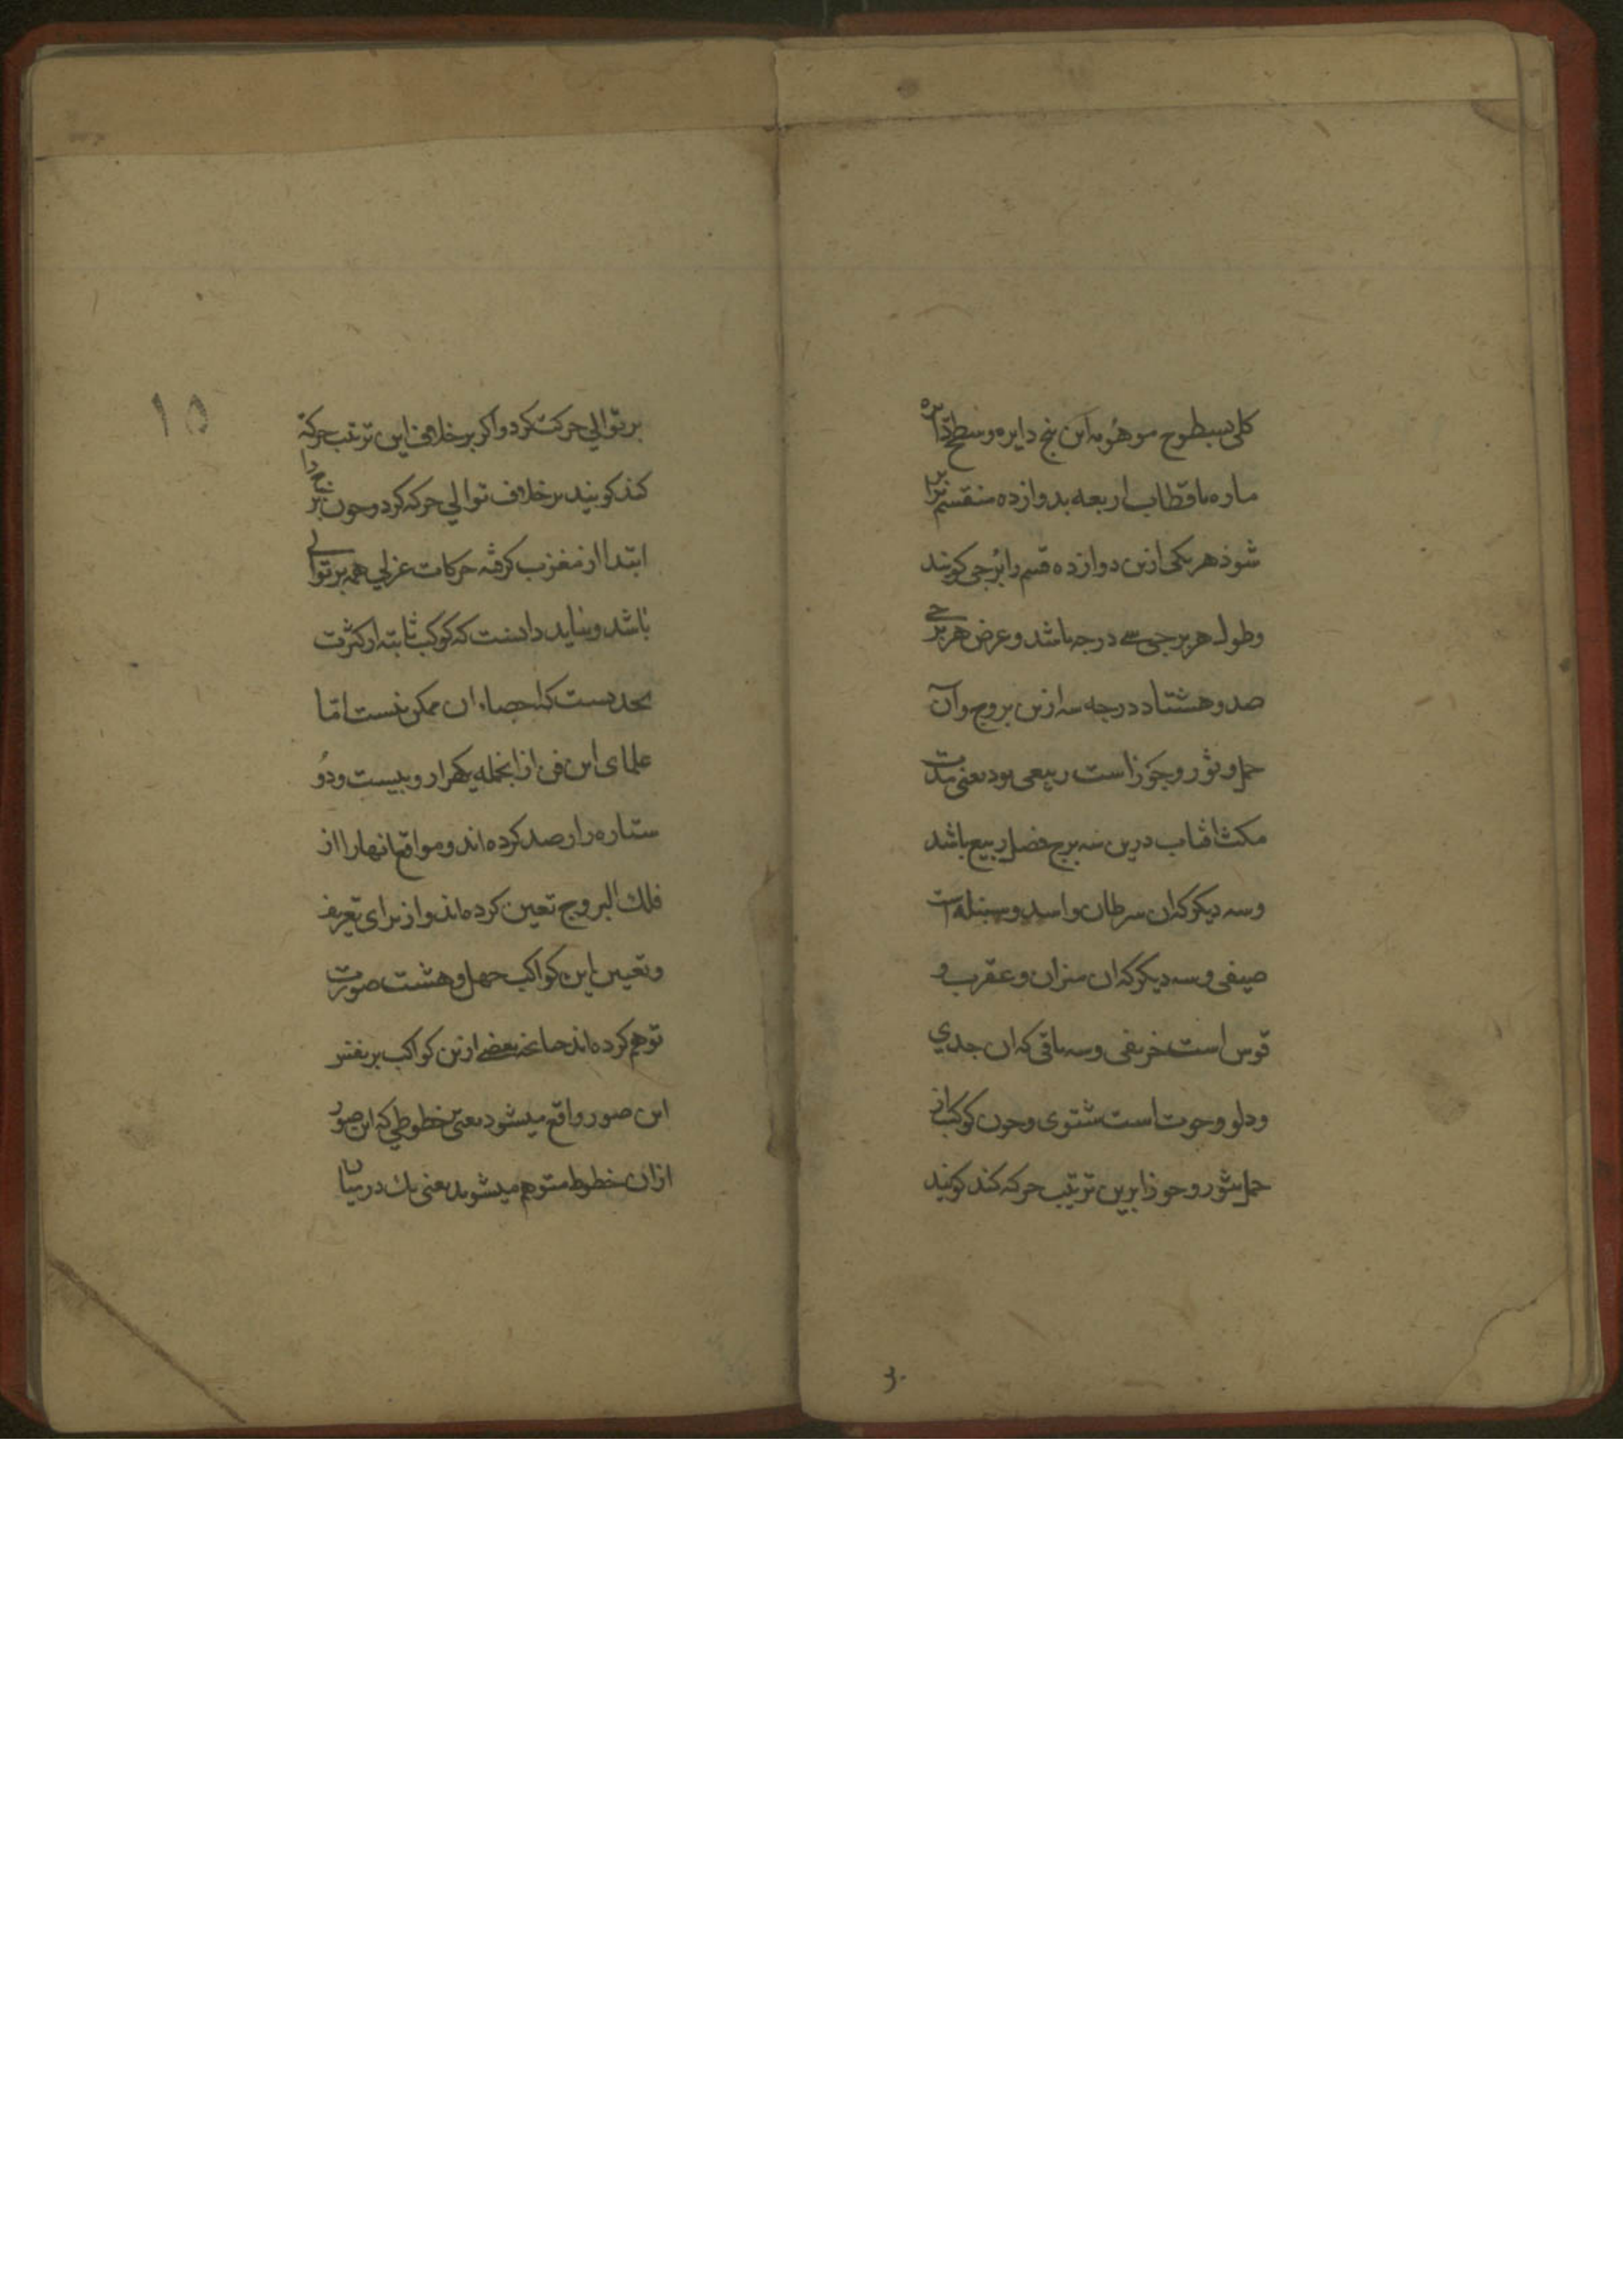 کلی بسطوح موهومه این پنج دایره و سطح دایره
ماره باقطاب اربعه بدوازده منقسم
شود هر یکی ازین دوازده قسم را برجی کویند
وطول هر برجی سی درجه باشد و عرض هر برجی
صد و هشتاد درجه سه ازین بروج و آن
حمل و ثور و جوزاست ربیعی بود یعنی مدت
مکث افتاب درین سه برج فصل ربیع باشد
و سه دیکر که ان سرطان و اسد و سنبله است
صیفی و سه دیکر که ان میزان و عقرب و
قوس است خریفی و سه باقی که ان جدي
و دلو و حوت است شتوی و چون کوکب از
حمل بثور و جوزا برین ترتیب حرکه کند کویند
بر
۱۵
بر توالي حرکت کرد و اکر بر خلاف این ترتیب حرکة
کند کویند بر خلاف توالي حرکه کرد و چون بروج را
ابتدا از مغرب کرفته حرکات غربي همه بر توالی
باشد و بباید دانست که کوکب ثابته از کثرت
بحدیست که احصاء ان ممکن نیست امّا
علمای این فن از انجمله یکهزار و بیست و دو
ستاره را رصد کرده اند و مواقع انها را از
فلك البروج تعین کرده اند و از برای تعریف
و تعیین این کواکب چهل و هشت صورت
توهم کرده اند چنانچه بعضی ازین کواکب بر نفس
این صور واقع میشود یعنی خطوطي که این صور
ازان خطوط متوهم میشوند یعنی یك در میان